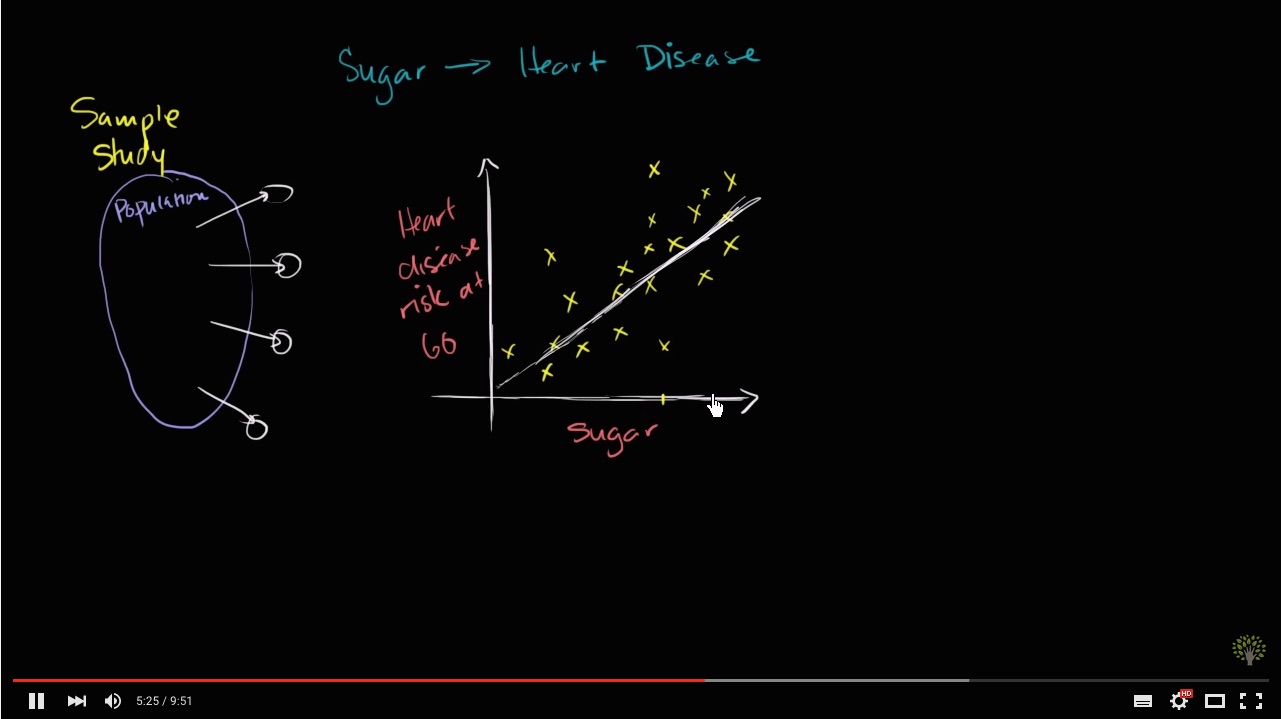 Sugar → Heart Disease
Sample
Study
Population
Heart
disease
risk at
60
Sugar
5:25 / 9:51
HD